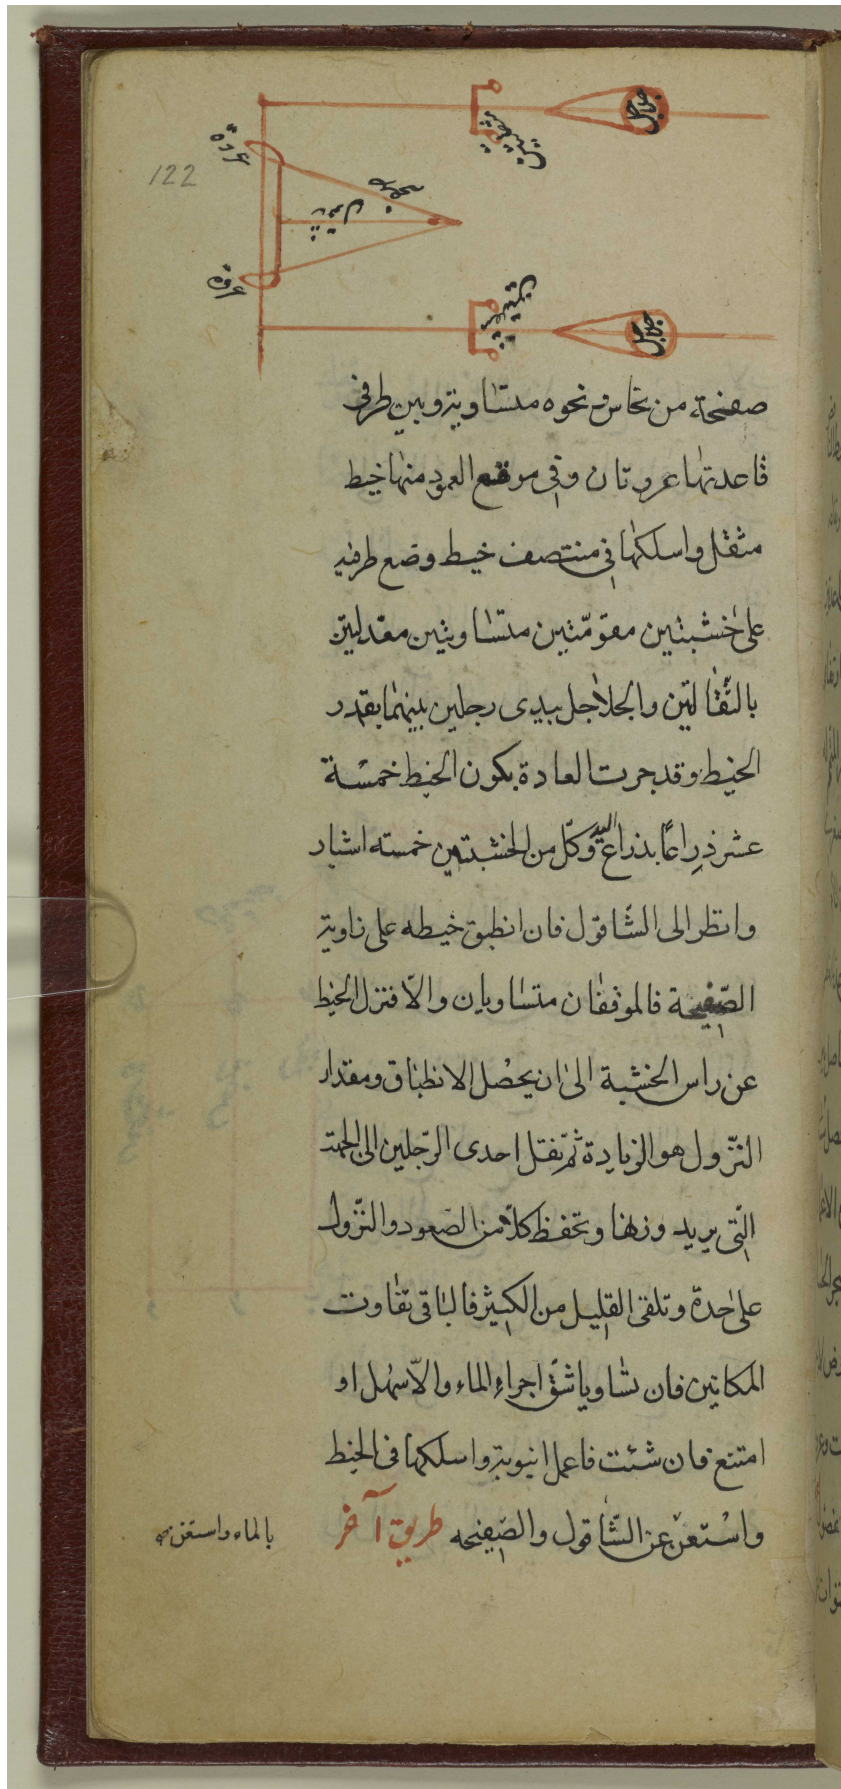 جلاجل
ثقيلتين
عروة
122
عمود
خيط
عروة
ثقيلتين
جلاجل
صفيحة من نحاس ونحوه متساوية وبين طرفى
قاعدتها عروتان وفى موقع العمود منها خيط
مثقل واسلكها فى منتصف خيط وضع طرفيه
على خشبتين مقومّتين متساويتين معدلتين
بالثّقالتين والجلاجل بيدى رجلين بينهما بقدر
الخيط وقد جرت العادة بكون الخيط خمسة
عشر ذراعًا بذراع اليد وكلّ من الخشبتين خمسة اشبار
وانظر الى الشّاقول فان انطبق خيطه على زاوية
الصّفيحة فالموقفان متساويان والّا فنزل الخيط
عن راس الخشبة الى ان يحصل الانطباق ومقدار
النّزول هو الزيادة ثمّ تنقل احدى الرّجلين الى الجهة
الّتى يريد وزنها وتحفظ كلاًّ من الصّعود والنّزول
على حدة وتلقى القليل من الكثير فالباقى تفاوت
المكانين فان تساويا شقّ اجراء الماء والّا سهل او
امتنع فان شئت فاعمل انبوبة واسلكها فى الخيط
واستعن عن الشّاقول والصّفيحه طريق آخر
بالماء واستغن